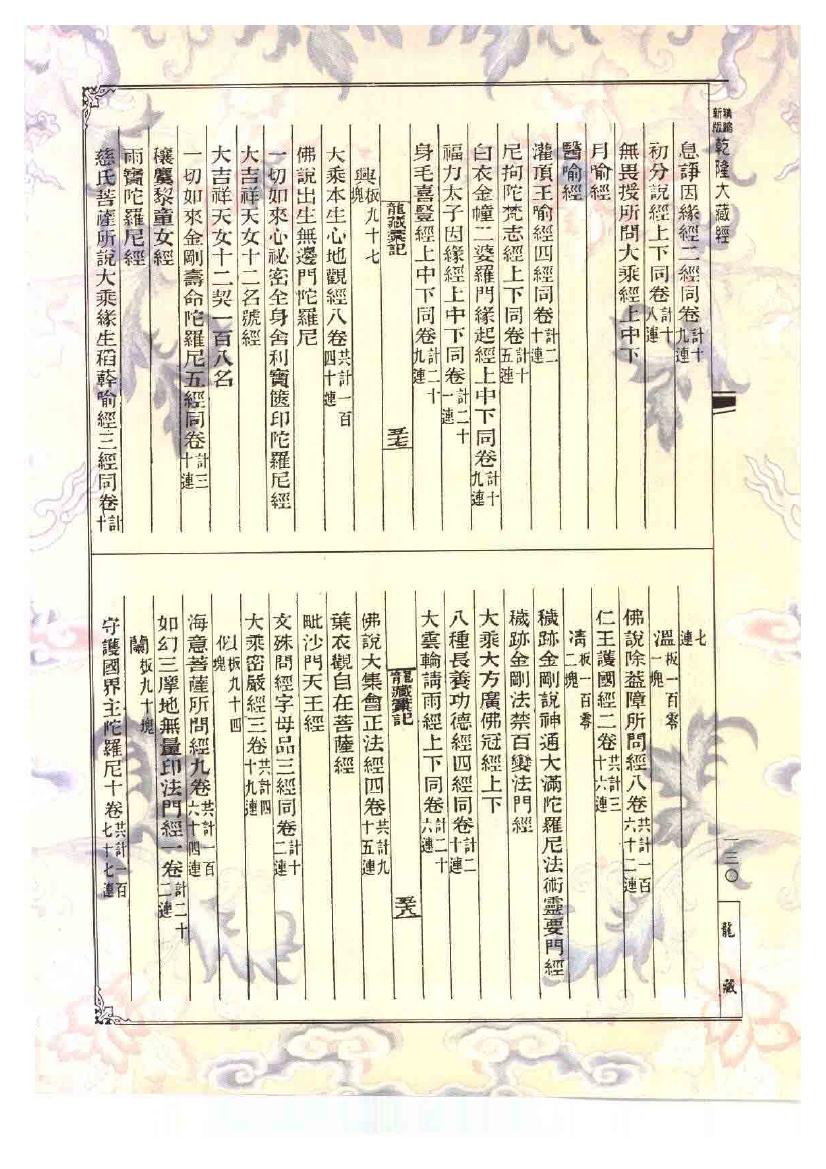 精縮新版乾隆大藏經
息諍因緣經二經同卷計十九連
初分說經上下同卷計十八連
無畏授所問大乘經上中下
月喻經
醫喻經
灌頂王喻經四經同卷計二十連
尼拘陀梵志經上下同卷計十五連
白衣金幢二婆羅門緣起經上中下同卷計十九連
福力太子因緣經上中下同卷計二十一連
身毛喜豎經上中下同卷計二十九連
龍藏彙記 五七
興板九十七塊
大乘本生心地觀經八卷共計一百四十連
佛說出生無邊門陀羅尼
一切如來心祕密全身舍利寶篋印陀羅尼經
大吉祥天女十二名號經
大吉祥天女十二契一百八名
一切如來金剛壽命陀羅尼五經同卷計三十連
穰麌黎童女經
雨寶陀羅尼經
慈氏菩薩所說大乘緣生稻𦼮喻經三經同卷計十
七連
溫板一百零一塊
佛說除蓋障所問經八卷共計一百六十二連
仁王護國經二卷共計三十六連
凊板一百零二塊
穢跡金剛說神通大滿陀羅尼法術靈要門經
穢跡金剛法禁百變法門經
大乘大方廣佛冠經上下
八種長養功德經四經同卷計二十連
大雲輪請雨經上下同卷計二十六連
龍藏彙記 五八
佛說大集會正法經四卷共計九十五連
葉衣觀自在菩薩經
毗沙門天王經
文殊問經字母品三經同卷計十二連
大乘密嚴經三卷共計四十九連
似板九十四塊
海意菩薩所問經九卷共計一百六十四連
如幻三摩地無量印法門經一卷計二十二連
蘭板九十塊
守護國界主陀羅尼十卷共計一百七十七連
一三〇
龍藏